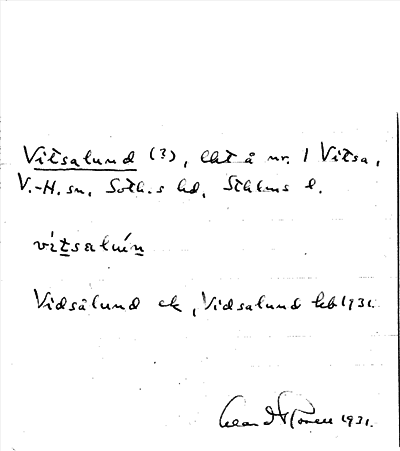 Vitsalund (?), lht å nr. 1 Vitsa,
V.-H. sn, Soth.s hd, Sthlms l.
vitsalún
Vidsålund ek, Vidsalund kb 1931.
1931.